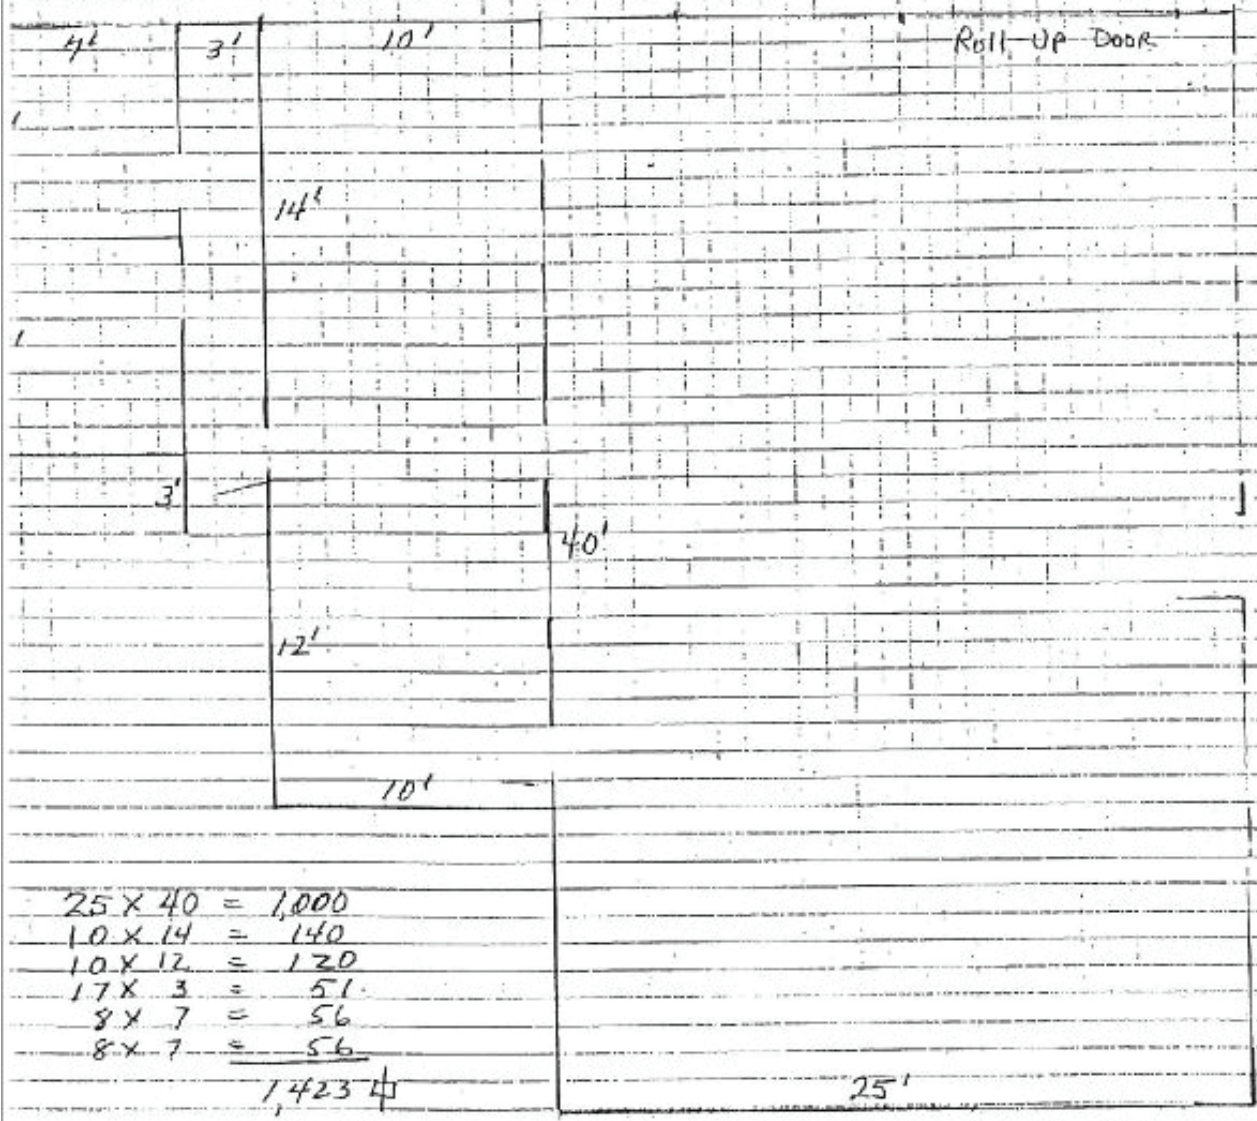 4' 3' 10' Roll-UP DOOR
14'
3'
40'
12'
10'
25 X 40 = 1,000
10 X 14 = 140
10 X 12 = 120
17 X 3 = 51
8 X 7 = 56
8 X 7 = 56
1,423
25'